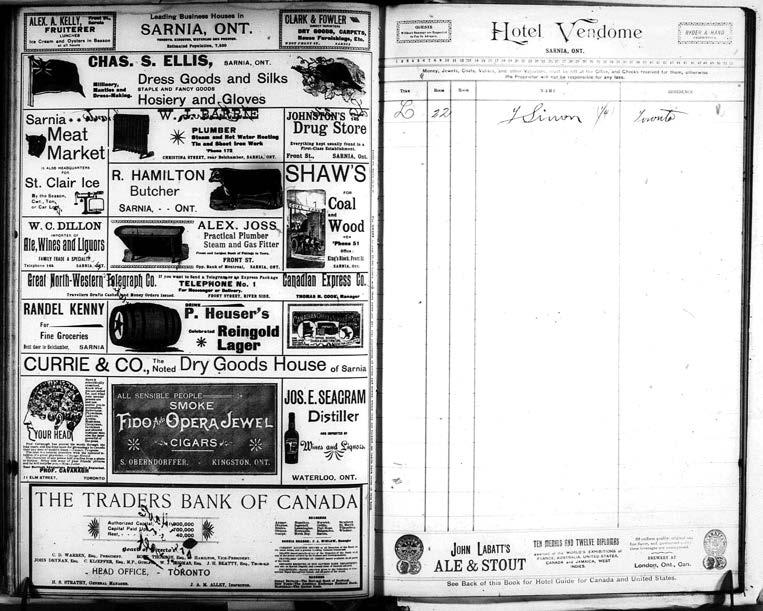 ALEX. A. KELLY,
Front St., Sarnia
FRUITERER
LUNCHES
Ice Cream and Oysters in Season
at all hours
Leading Business Houses in
SARNIA, ONT.
Estimated Population, 7,000
CLARK & FOWLER
DIRECT IMPORTERS
DRY GOODS, CARPETS,
House Furnishings, Etc.
WEST FRONT ST., SARNIA
CHAS. S. ELLIS, SARNIA, ONT.
Millinery,
Mantles and
Dress-Making.
Dress Goods and Silks
STAPLE AND FANCY GOODS
Hosiery and Gloves
Sarnia
Meat
Market
IS ALSO HEADQUARTERS
FOR
St. Clair Ice
By the Season,
Cwt., Ton,
or Car Lot
W. J. BARRIE
PLUMBER
Steam and Hot Water Heating
Tin and Sheet Iron Work
'Phone 172
CHRISTINA STREET, near Belchamber, SARNIA, ONT.
JOHNSTON'S
Drug Store
Everything kept usually found in a
First-Class Establishment.
Front St., SARNIA, Ont.
R. HAMILTON
Butcher
SARNIA, - - ONT.
SHAW'S
FOR
Coal
and
Wood
'Phone 51
Office:
King's Block, Front St.
SARNIA, Ont.
W. C. DILLON
IMPORTER OF
Ale, Wines and Liquors
FAMILY TRADE A SPECIALTY
Telephone 148. SARNIA, Ont.
ALEX. JOSS
Practical Plumber
Steam and Gas Fitter
FRONT ST.
Opp. Bank of Montreal, SARNIA, ONT.
Great North-Western Telegraph Co.
If you want to Send a Telegram or an Express Package
TELEPHONE No. 1
For Messenger or Delivery.
Canadian Express Co.
Travellers Drafts Cashed and Money Orders Issued.
FRONT STREET, RIVER SIDE.
THOMAS H. COOK, Manager
RANDEL KENNY
For
Fine Groceries
Next door to Belchamber, SARNIA
DRINK
P. Heuser's
Celebrated Reingold
Lager
CURRIE & CO., The Noted Dry Goods House of Sarnia
YOUR HEAD
PROF. CAVANAGH
11 ELM STREET, TORONTO
ALL SENSIBLE PEOPLE
SMOKE
FIDO AND OPERA JEWEL
CIGARS
S. OBERNDORFFER, KINGSTON, ONT.
JOS. E. SEAGRAM
Distiller
AND IMPORTER OF
Wines and Liquors
WATERLOO, ONT.
THE TRADERS BANK OF CANADA
Authorized Capital,
Capital Paid Up, 700,000
Rest, 40,000
Board of Directors
C. D. WARREN, Esq., President.
HEAD OFFICE, - TORONTO
H. S. STRATHY, General Manager. J. A. M. ALLEY, Inspector.
Hotel Vendome
SARNIA, ONT.
GUESTS
Without Baggage are Requested
to Pay in Advance.
RYDER & HAND
PROPRIETORS
Money, Jewels, Coats, Valises, and other Valuables, must be left at the Office, and Checks received for them, otherwise
the Proprietor will not be responsible for any loss.
TIME ROOM ROOM NAME RESIDENCE
L 22 Toronto
JOHN LABATT'S
ALE & STOUT
TEN MEDALS AND TWELVE DIPLOMAS
awarded at the WORLD'S EXHIBITIONS of
FRANCE, AUSTRALIA, UNITED STATES,
CANADA and JAMAICA, WEST
INDIES.
BREWERY AT
London, Ont., Can.
See Back of this Book for Hotel Guide for Canada and United States.